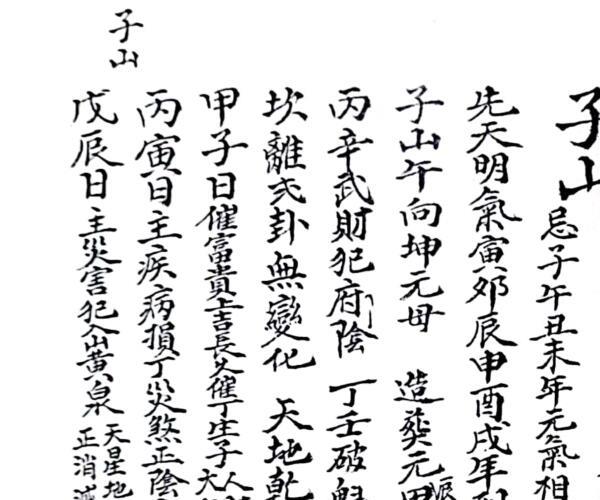 子山 忌子午丑未年元氣相
先天明氣寅卯辰申酉戌年
子山午向坤元母 造葬元
丙辛武財犯府陰 丁壬破魁
坎離弍卦無變化 天地乾
甲子日催富貴上吉長久催丁生子
丙寅日主疾病損丁災煞正陰
戊辰日主災害犯入山黄泉 天星地 正消滅
子山